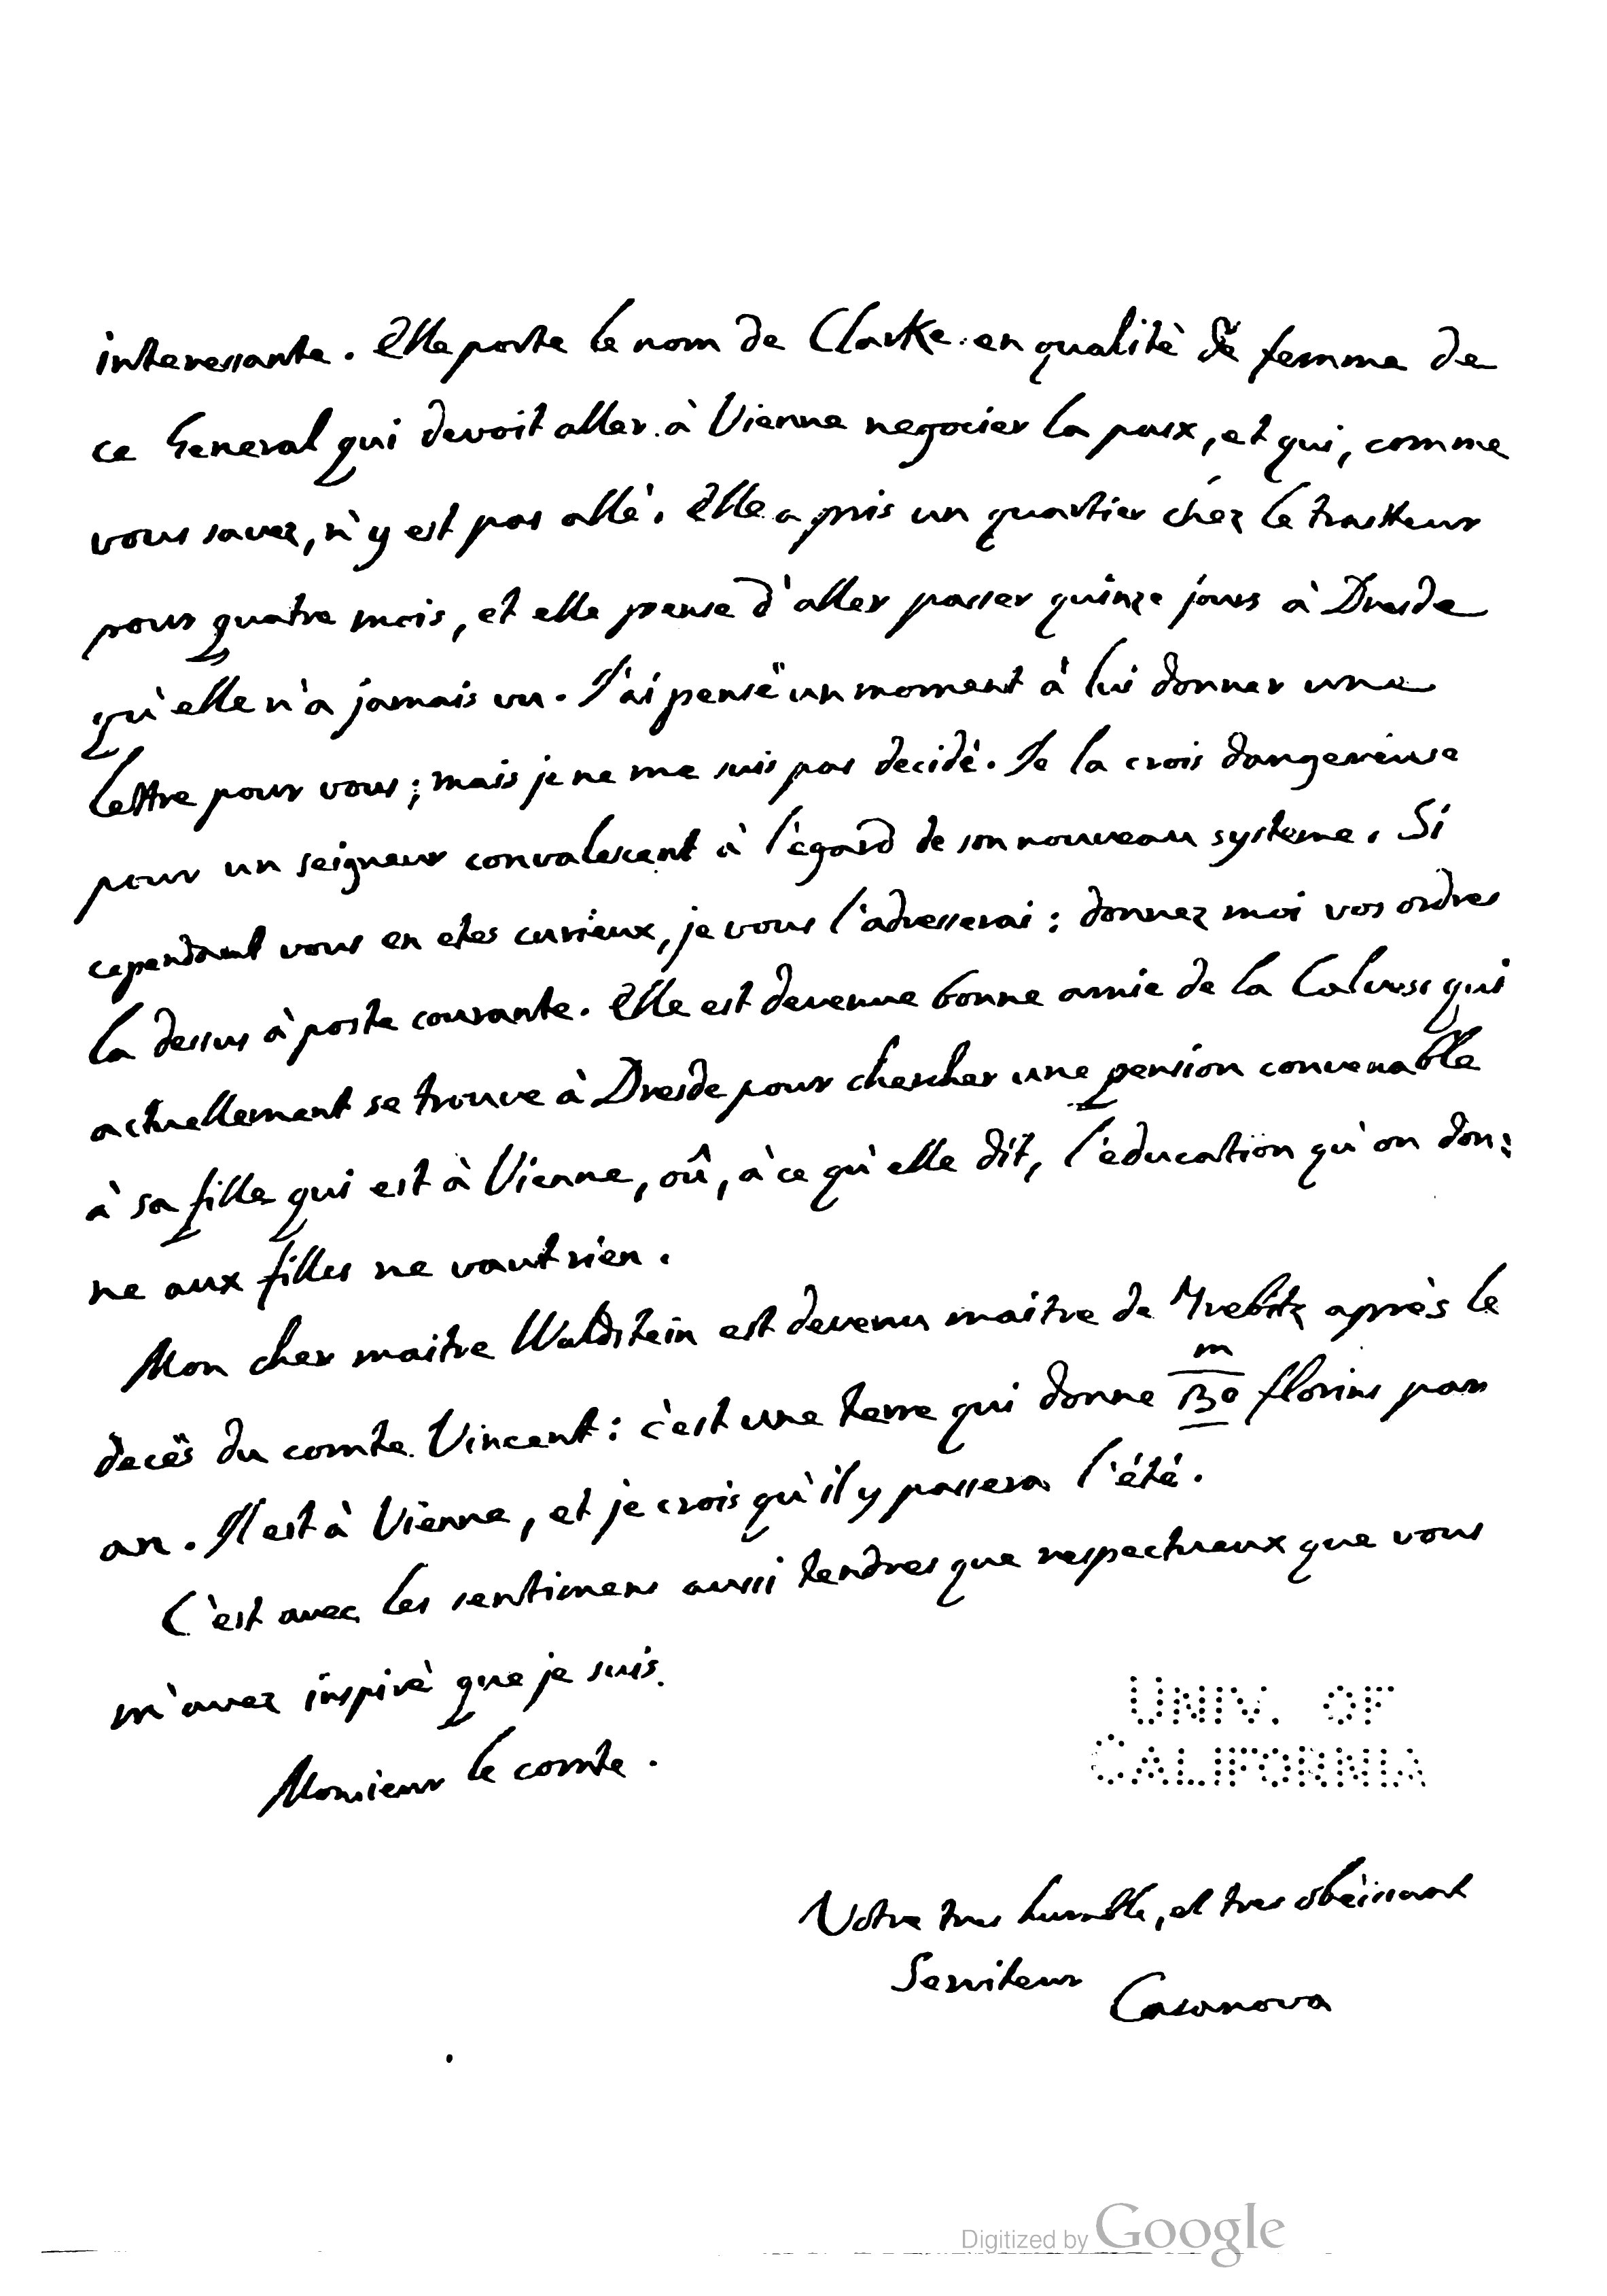 interessante. Elle porte le nom de Clarke en qualitè de femme de
ce General qui devoit aller à Vienne negocier la paix, et qui, comme
vous savez, n'y est pas allè. Elle a pris un quartier chez le traitteur
pour quatre mois, et elle pense d'aller passer quinze jours à Dresde
qu'elle n'a jamais vu. J'ai pensë un moment à lui donner une
lettre pour vous; mais je ne me suis pas decidè. Je la crois dangereuse
pour un seigneur convalescent à l'ègard de son nouveau systeme. Si
cependant vous en etes curieux, je vous l'adresserai: donnez moi vos ordres
la dessus à poste courante. Elle est devenue bonne amie de la qui
actuellement se trouve à Dresde pour chercher une pension convenable
à sa fille qui est à Vienne, oû, à ce qu'elle dit, l'èducation qu'on don:
ne aux filles ne vaut rien.
Mon cher maitre Waldstein est devenu maitre de Trebitz après le
decës du comte Vincent: c'est une terre qui donne m florins par
an. Il est à Vienne, et je crois qu'il y passera l'étè.
C'est avec les sentimens aussi tendres que respectueux que vous
m'avez inspirè que je suis.
Monsieur le comte.
UNIV. OF
CALIFORNIA
Votre tres humble, et tres obèissant
Serviteur Casanova
Digitized by Google